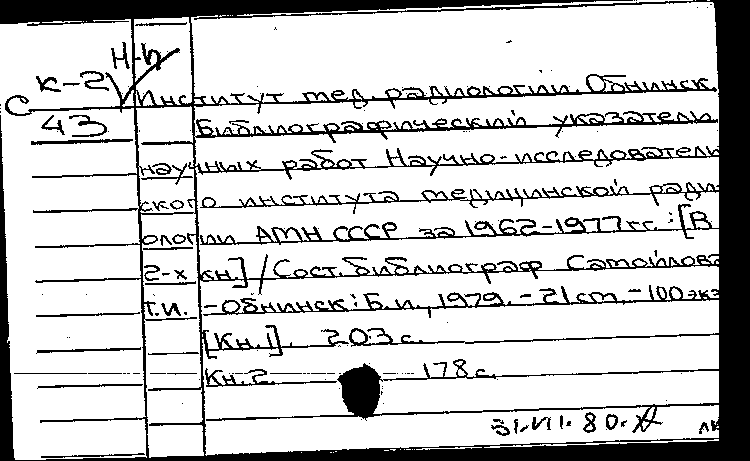 Н-h
К-2
С
43
Институт мед. радиологии. Обнинск.
Библиографический указатель
научных работ Научно-исследователь
ского института медицинской ради-
ологии АМН СССР за 1962-1977 гг.: [В
2-х кн.] / Сост. библиограф Самойлова
Т.И. - Обнинск: Б.и., 1979. - 21 cm. - 100 экз
[Кн. 1]. 203 с.
Кн. 2. 178 с.
31.VII.80.